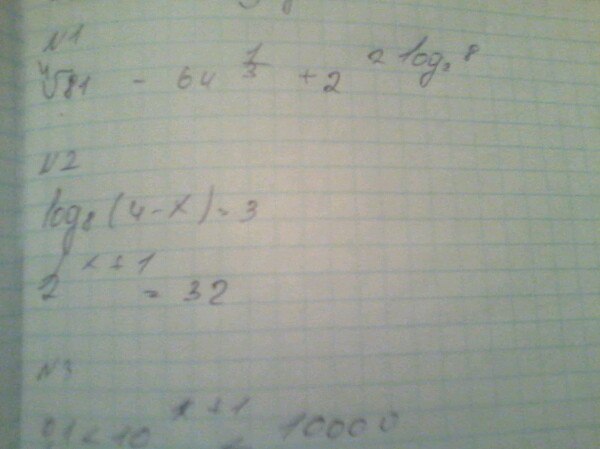 N1
∜81 - 64^{1/3} + 2^{2 log₂ 8}
N2
log₈(4-x) = 3
2^{x+1} = 32
N3
0,1 < 10^{x+1} 10000